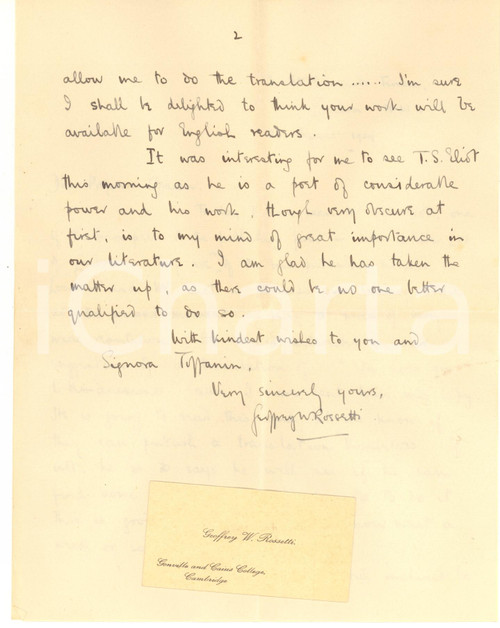 2
allow me to do the translation ...... I'm sure
I shall be delighted to think your work will be
available for English readers.
It was interesting for me to see T.S. Eliot
this morning as he is a poet of considerable
power and his work, though very obscure at
first, is to my mind of great importance in
our literature. I am glad he has taken the
matter up, as there could be no one better
qualified to do so.
With kindest wishes to you and
Signora Toffanin,
Very sincerely yours,
Geoffrey W. Rossetti
Geoffrey W. Rossetti.
Gonville and Caius College,
Cambridge
iCharta